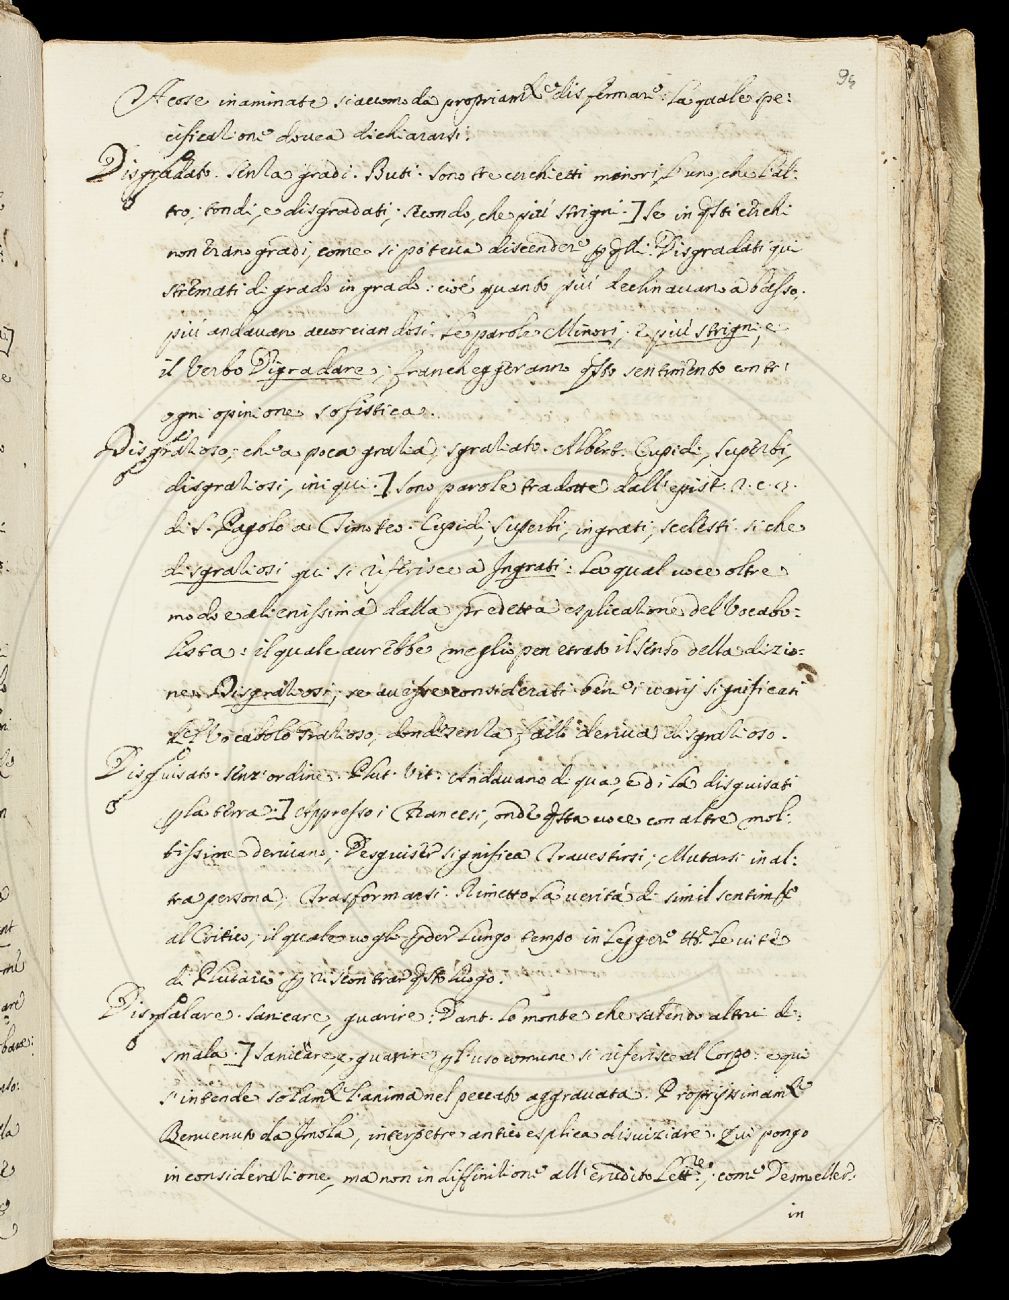 95
A cose inaminate si acomoda propriam.te disfermare: la quale spe:
cificatione doveva dichiararsi:
Disgradato. senza gradi. Buti. sono tre cerchietti minori, l'uno, che l'al:
tro; tondi, e disgradati; secondo, che più strigni.] Se in q.sti cerchi
non erano gradi, come si poteva discendere p q.lli? Disgradati qui
stremati di grado in grado: cioè quanto più declinavano à basso,
più andavano accorciandosi. Le parole Minori; e più strigni; e
il Verbo Digradare; francheggeranno q.sto sentimento contr'
ogni opinione sofistica.
Disgratioso; che a poca gratia; sgratiato. Albert. Cupidi, superbi,
disgratiosi, iniqui.] sono parole tradotte dall'epist. 2. c. 3.
di S. Pagolo a Timoteo. Cupidi, superbi, ingrati, scelesti. si che
disgratiosi qui si riferisce à Ingrati: la qual voce oltre
modo è alienissima dalla predetta esplicatione del Vocabo:
lista: il quale aurebbe meglio penetrato il senso della dizio:
ne Disgratiosi; se avesse considerati bene i varij significati
del Vocabolo Gratioso, donde senza fallo deriva disgratioso.
Disguisato. senz'ordine. Plut. Vit. Andavano di qua, e di là disguisati
p la terra.] Appresso i Francesi, onde q.sta voce con altre mol:
tissime derivano; Desguiser significa Travestirsi; Mutarsi in al:
tra persona; Trasformarsi. Rimetto la verità di simil sentim.to
al Critico; il quale vogli p.der lungo tempo in leggere tt.e le vite
di Plutarco p riscontrar q.sto luogo.
Dismalare. sanicare, guarire. Dant. Lo monte che salendo altrui di:
smala.] Sanicare, e guarire p l'uso comune si riferisce al Corpo: e qui
s'intende solam.te l'anima nel peccato aggravata. Proprissimam.te
Benvenuto da Imola, interpetre antico esplica disviziare. Qui pongo
in consideratione, ma non in diffinitione all'erudito Lett.re; come Desmeller
in